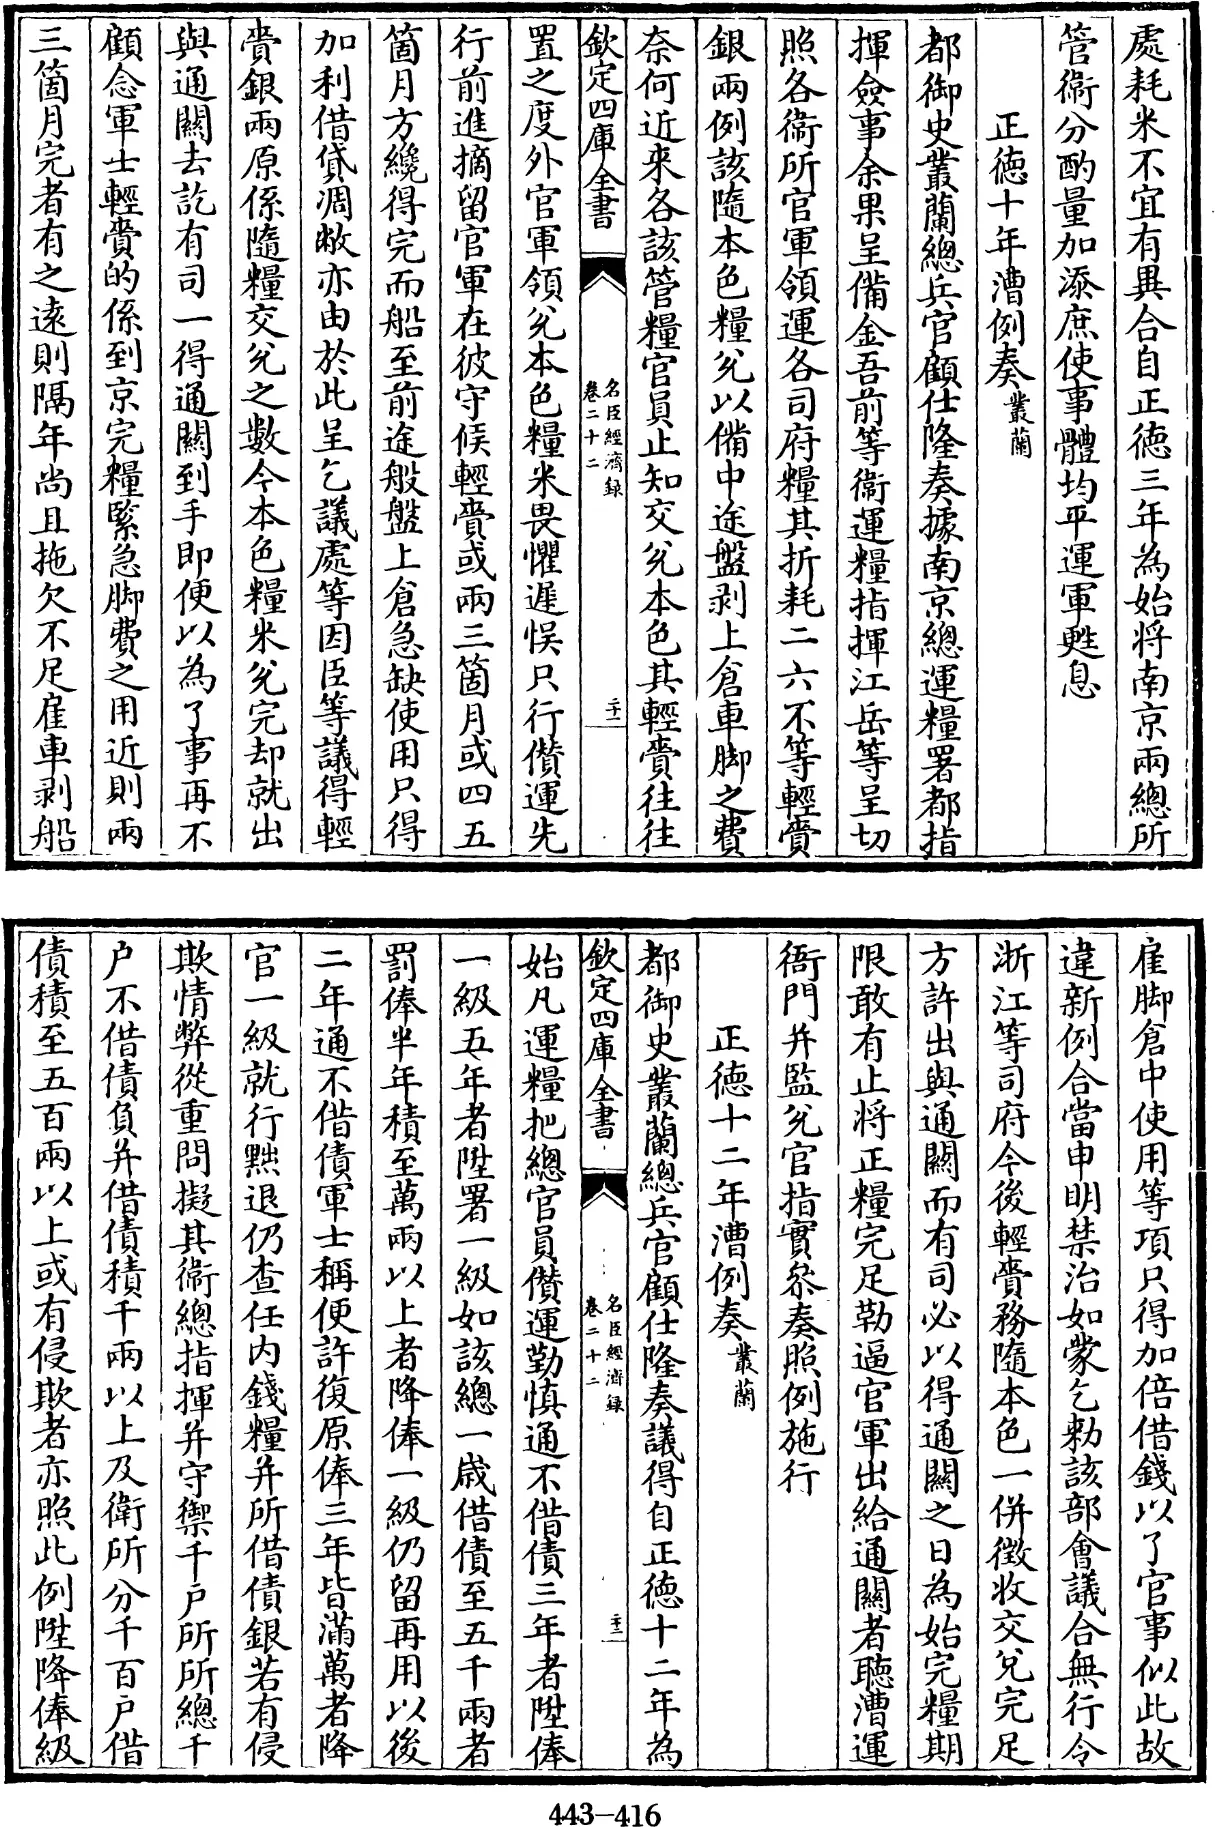 處耗米不宜有異合自正徳三年為始將南京兩總所
管衛分酌量加添庶使事體均平運軍甦息
正徳十年漕例奏叢蘭
都御史叢蘭總兵官顧仕隆奏據南京總運糧署都指
揮僉事余果呈備金吾前等衛運糧指揮江岳等呈切
照各衛所官軍領運各司府糧其折耗二六不等輕賫
銀兩例該隨本色糧兑以備中途盤剥上倉車脚之費
奈何近來各該管糧官員止知交兑本色其輕賫往往
欽定四庫全書
名臣經濟録
卷二十二
二十一
置之度外官軍領兑本色糧米畏懼遲悮只行儹運先
行前進摘留官軍在彼守候輕賫或兩三箇月或四五
箇月方纔得完而船至前途般盤上倉急缺使用只得
加利借貸凋敝亦由於此呈乞議處等因臣等議得輕
賫銀兩原係隨糧交兑之數今本色糧米兑完却就出
與通關去訖有司一得通關到手即便以為了事再不
顧念軍士輕賫的係到京完糧緊急脚費之用近則兩
三箇月完者有之逺則隔年尚且拖欠不足雇車剥船
雇脚倉中使用等項只得加倍借錢以了官事似此故
違新例合當申明禁治如蒙乞勅該部會議合無行令
浙江等司府今後輕賫務隨本色一併徴收交兑完足
方許出與通關而有司必以得通關之日為始完糧期
限敢有止將正糧完足勒逼官軍出給通關者聴漕運
衙門并監兑官指實叅奏照例施行
正徳十二年漕例奏叢蘭
都御史叢蘭總兵官顧仕隆奏議得自正徳十二年為
欽定四庫全書
名臣經濟録
卷二十二
二十二
始凡運糧把總官員儹運勤慎通不借債三年者陞俸
一級五年者陞署一級如該總一歳借債至五千兩者
罰俸半年積至萬兩以上者降俸一級仍留再用以後
二年通不借債軍士稱便許復原俸三年皆滿萬者降
官一級就行黜退仍查任内錢糧并所借債銀若有侵
欺情弊從重問擬其衛總指揮并守禦千户所所總千
户不借債負并借債積千兩以上及衛所分千百户借
債積至五百兩以上或有侵欺者亦照此例陞降俸級
443-416